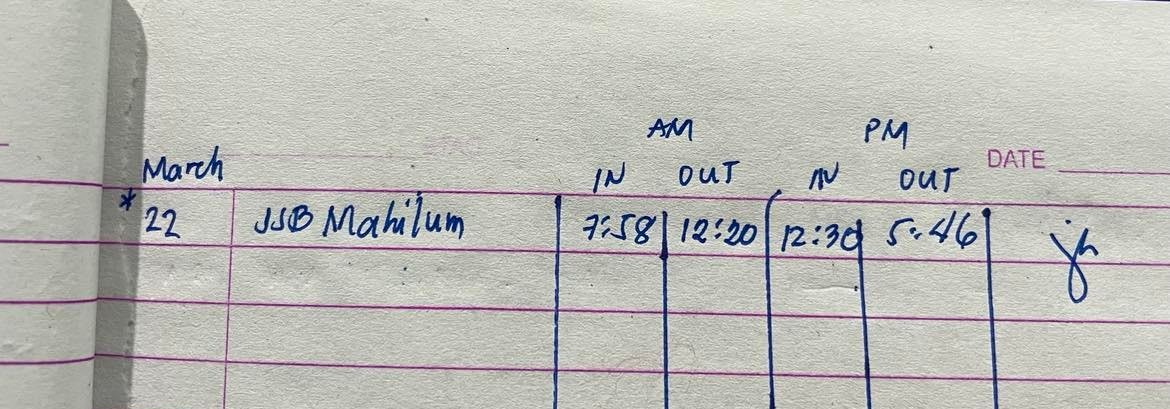 AM PM
March IN OUT IN OUT DATE
* 22 JSB Mahilum 7:58 12:20 12:30 5:46